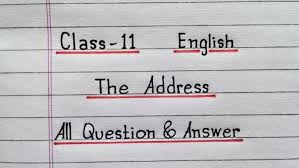 Class-11 English
The Address
All Question & Answer